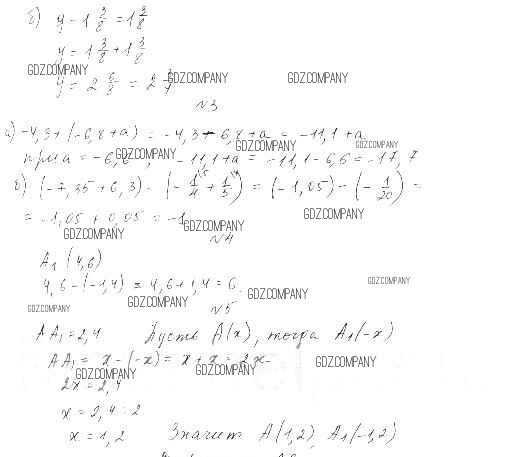 б) y - 1 3/8 = 1 3/8
y = 1 3/8 + 1 3/8
GDZ.COMPANY GDZ.COMPANY GDZ.COMPANY
y = 2 6/8 = 2 3/4
№3
а) -4,3 + (-6,8 + a) = -4,3 - 6,8 + a = -11,1 + a
GDZ.COMPANY GDZ.COMPANY GDZ.COMPANY
при a = -6,6, -11,1 + a = -11,1 - 6,6 = -17,7
б) (-7,35 + 6,3) - (-1/4 + 1/5) = (-1,05) - (-1/20) =
= -1,05 + 0,05 = -1
GDZ.COMPANY GDZ.COMPANY GDZ.COMPANY
№4
A₁ (4,6)
4,6 - (-1,4) = 4,6 + 1,4 = 6
GDZ.COMPANY GDZ.COMPANY GDZ.COMPANY GDZ.COMPANY
№5
AA₁ = 2,4 Пусть A(x), тогда A₁(-x)
AA₁ = x - (-x) = x + x = 2x
GDZ.COMPANY GDZ.COMPANY GDZ.COMPANY
2x = 2,4
x = 2,4 : 2
x = 1,2 Значит A(1,2), A₁(-1,2)